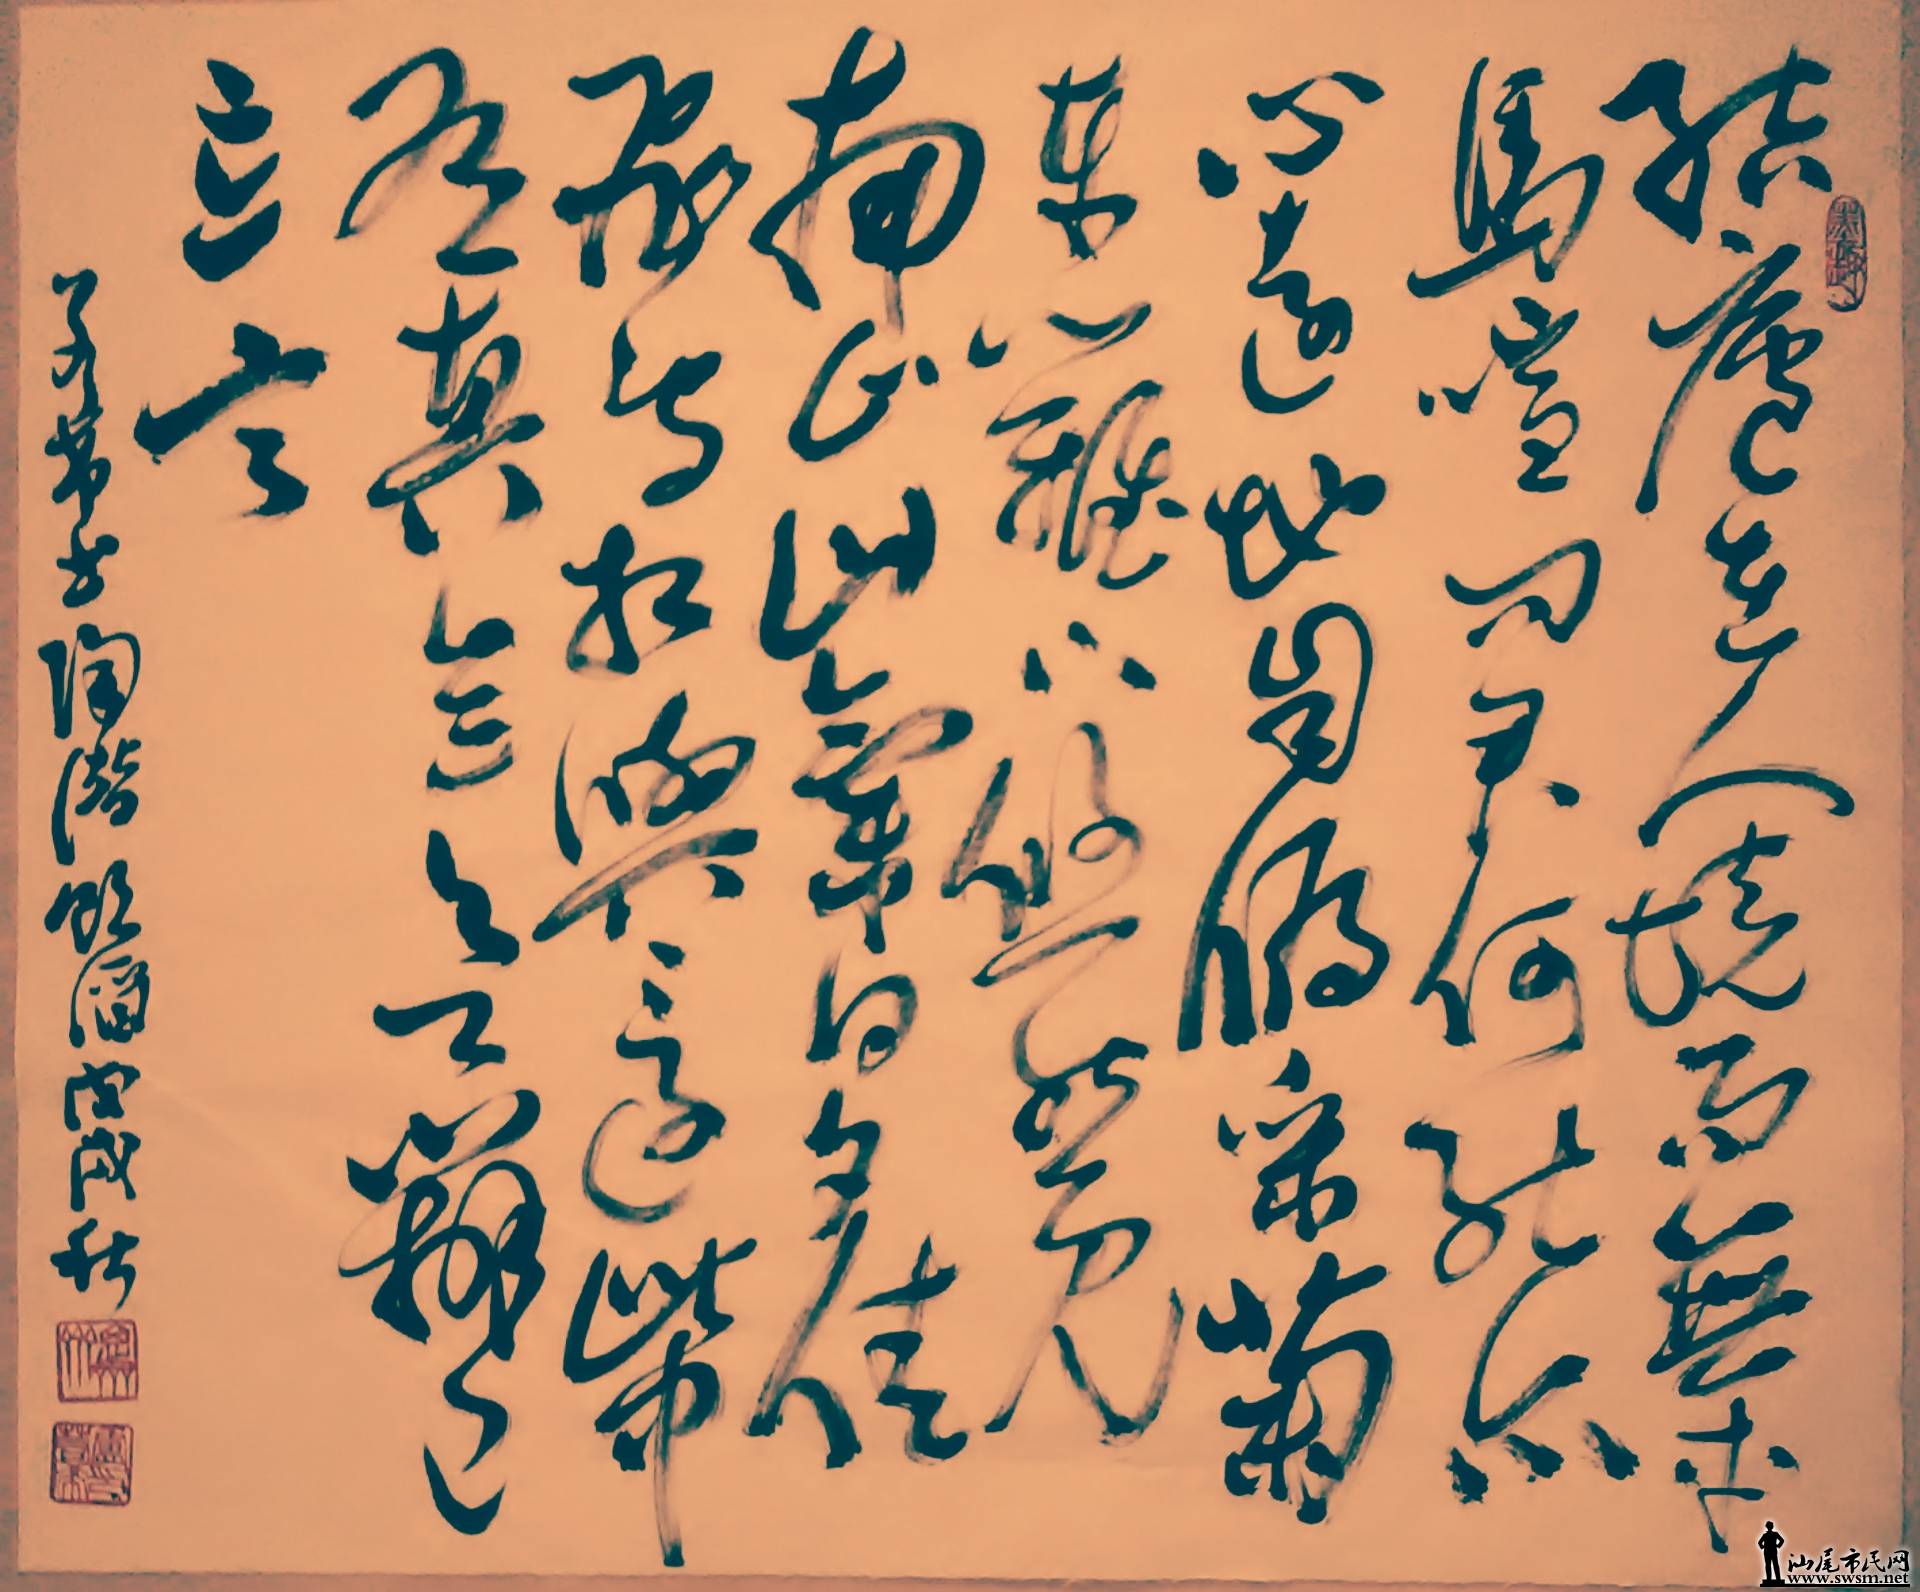 結廬在人境而無車
馬喧問君何能尔
心遠地自偏采菊
東籬下悠然見
南山山氣日夕佳
飛鳥相與還此中
有真意欲辨已
忘言
书陶潛飲酒戊戌秋
汕尾市民网
www.swsm.net